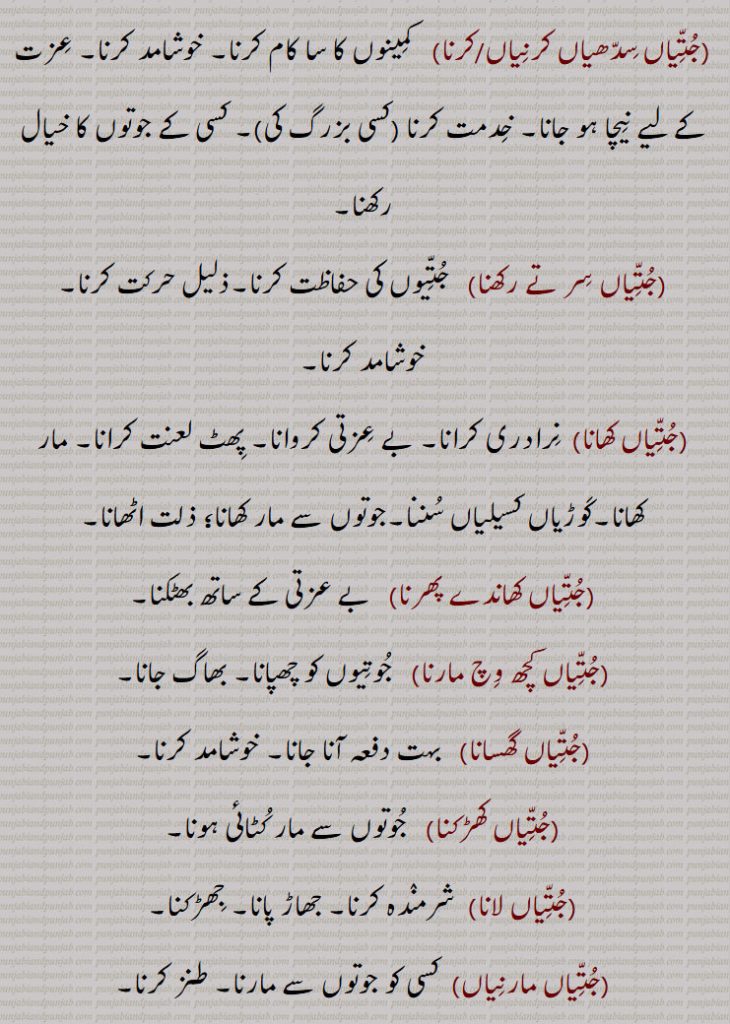 (جُتِّیاں سِدّھیاں کرنِیاں/کرنا) کمِینوں کا سا کام کرنا۔ خوشامد کرنا۔ عِزت
کے لیے نِیچا ہو جانا۔ خِدمت کرنا (کسی بزرگ کی)۔ کسی کے جوتوں کا خیال
رکھنا۔
(جُتِّیاں سِر تے رکھنا) جُتِّیوں کی حفاظت کرنا۔ ذلیل حرکت کرنا۔
خوشامد کرنا۔
(جُتِّیاں کھانا) نِرادری کرانا۔ بے عِزتی کروانا۔ پِھٹ لعنت کرانا۔ مار
کھانا۔ کَوڑیاں کسیلیاں سُننا۔ جوتوں سے مار کھانا؛ ذلت اٹھانا۔
(جُتِّیاں کھاندے پھرنا) بے عزتی کے ساتھ بھٹکنا۔
(جُتِّیاں کچھ وِچ مارنا) جُوتِیوں کو چھپانا۔ بھاگ جانا۔
(جُتِّیاں گھسانا) بہت دفعہ آنا جانا۔ خوشامد کرنا۔
(جُتِّیاں کھڑکنا) جُوتوں سے مار کُٹائی ہونا۔
(جُتِّیاں لانا) شرمنْدہ کرنا۔ جھاڑ پانا۔ جِھڑکنا۔
(جُتِّیاں مارنِیاں) کسی کو جوتوں سے مارنا۔ طنز کرنا۔